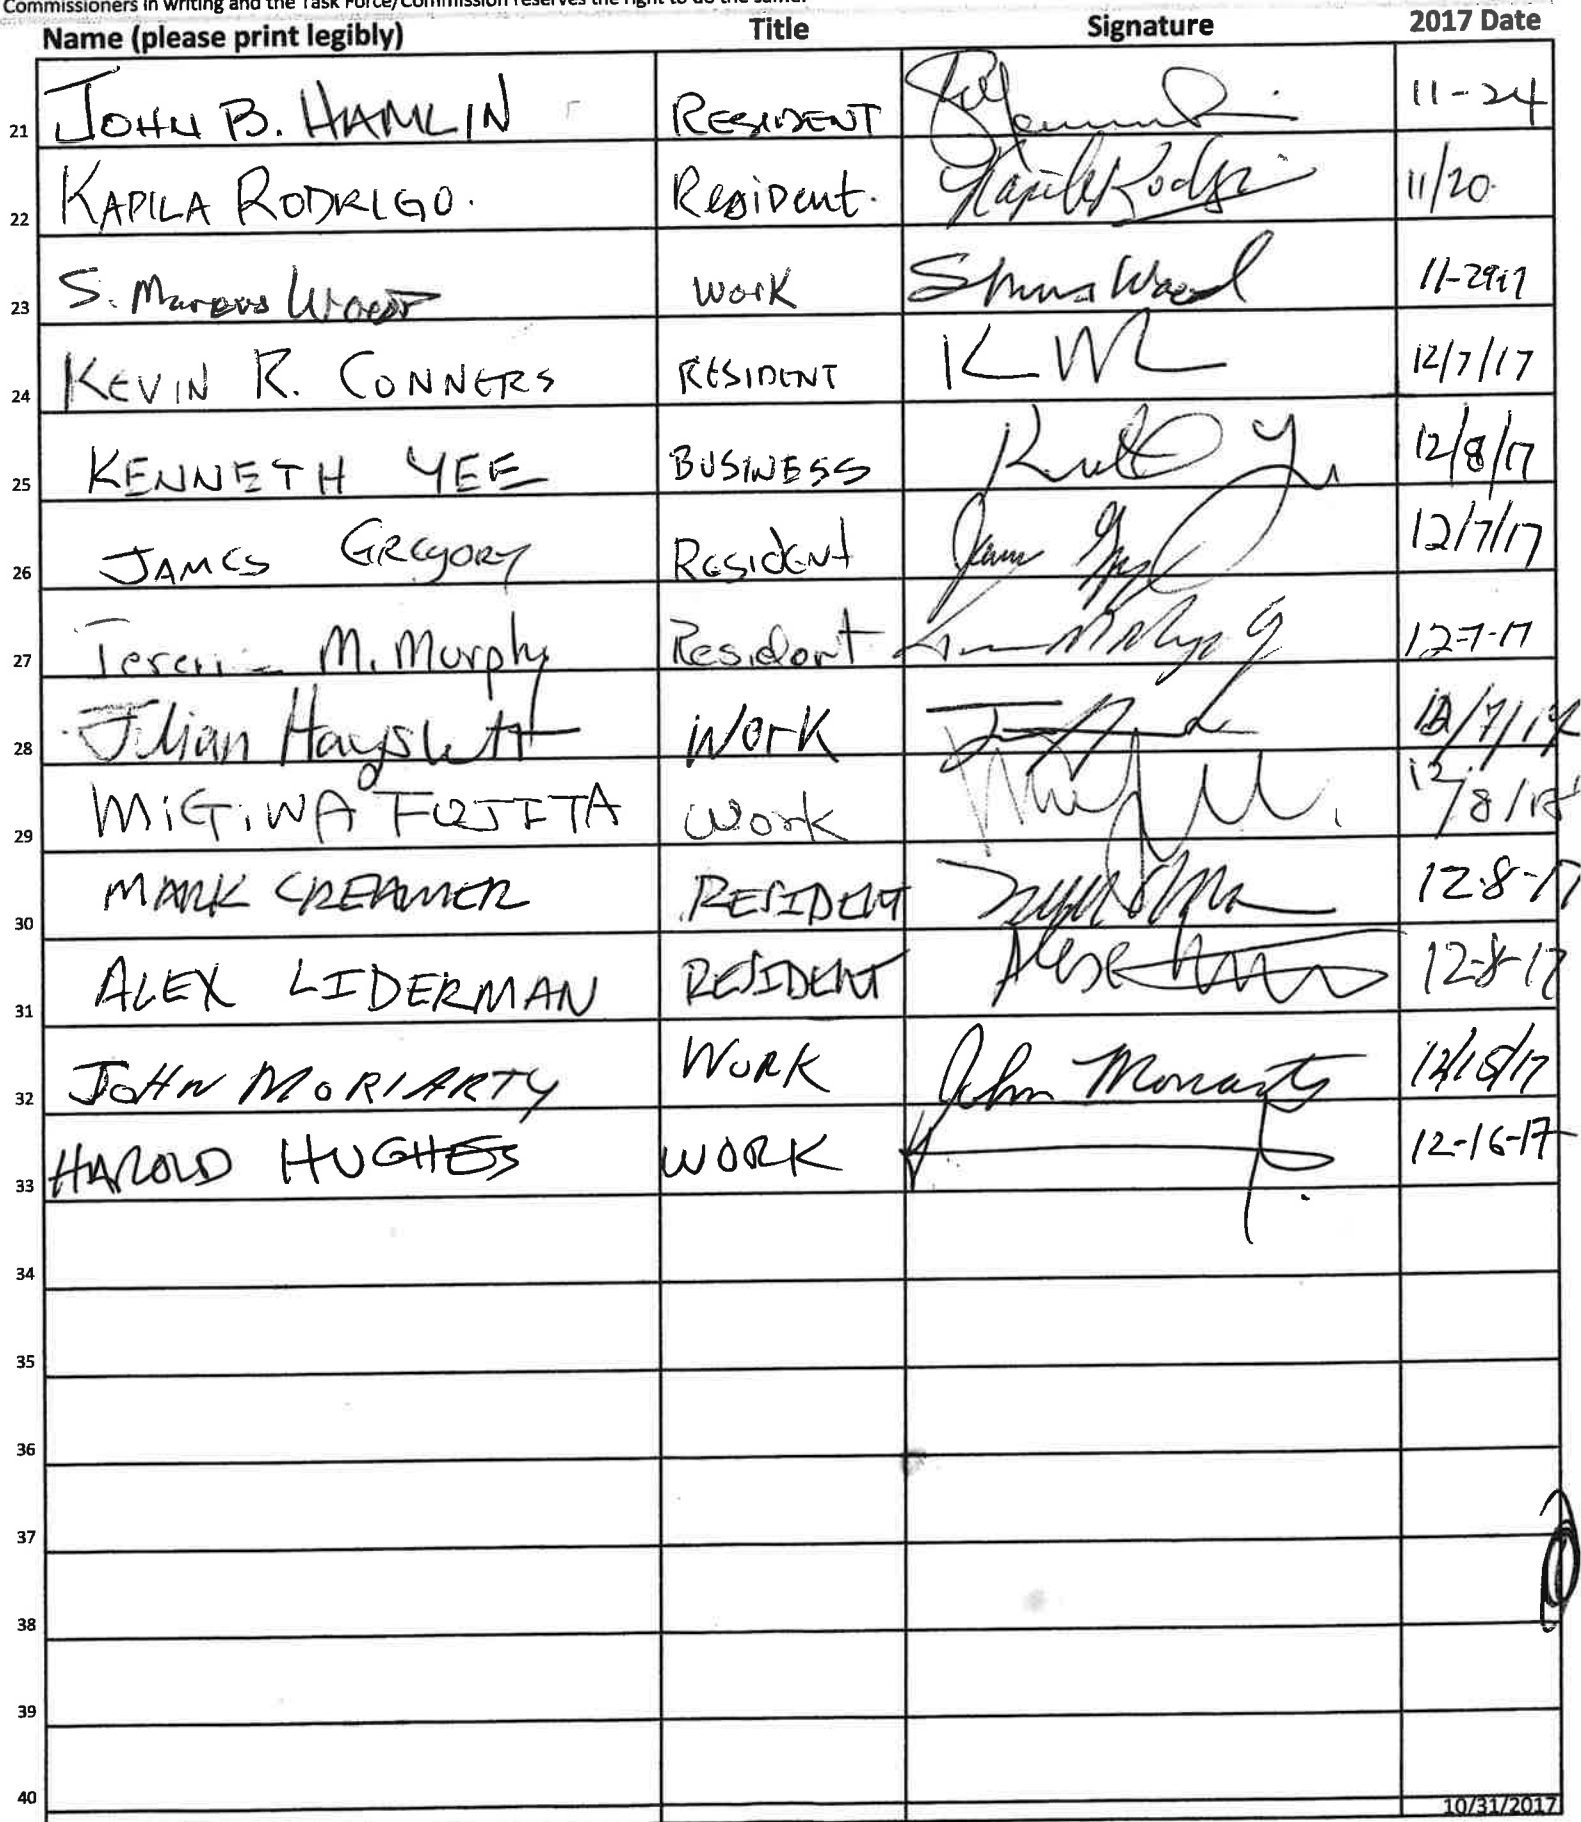 Commissioners in writing and the Task Force/Commission reserves the right to do the same.
Name (please print legibly) Title Signature 2017 Date
21 JOHN B. HAMLIN RESIDENT 11-24
22 KAPILA RODRIGO. Resident. Kapila Rodrigo 11/20
23 S. Marcus Work 11-29-17
24 KEVIN R. CONNERS RESIDENT 12/7/17
25 KENNETH YEE BUSINESS 12/8/17
26 JAMES GREGORY Resident 12/7/17
27 M. Murphy Resident 12-7-17
28 Jilian Hayslett Work 12/7/17
29 MiGiWA FUJITA Work 12/8/
30 MARK CREAMER RESIDENT 12-8-17
31 ALEX LIDERMAN RESIDENT 12-8-17
32 JOHN MORIARTY WORK John Moriarty 12/15/17
33 HAROLD HUGHES WORK 12-16-17
34
35
36
37
38
39
40
10/31/2017